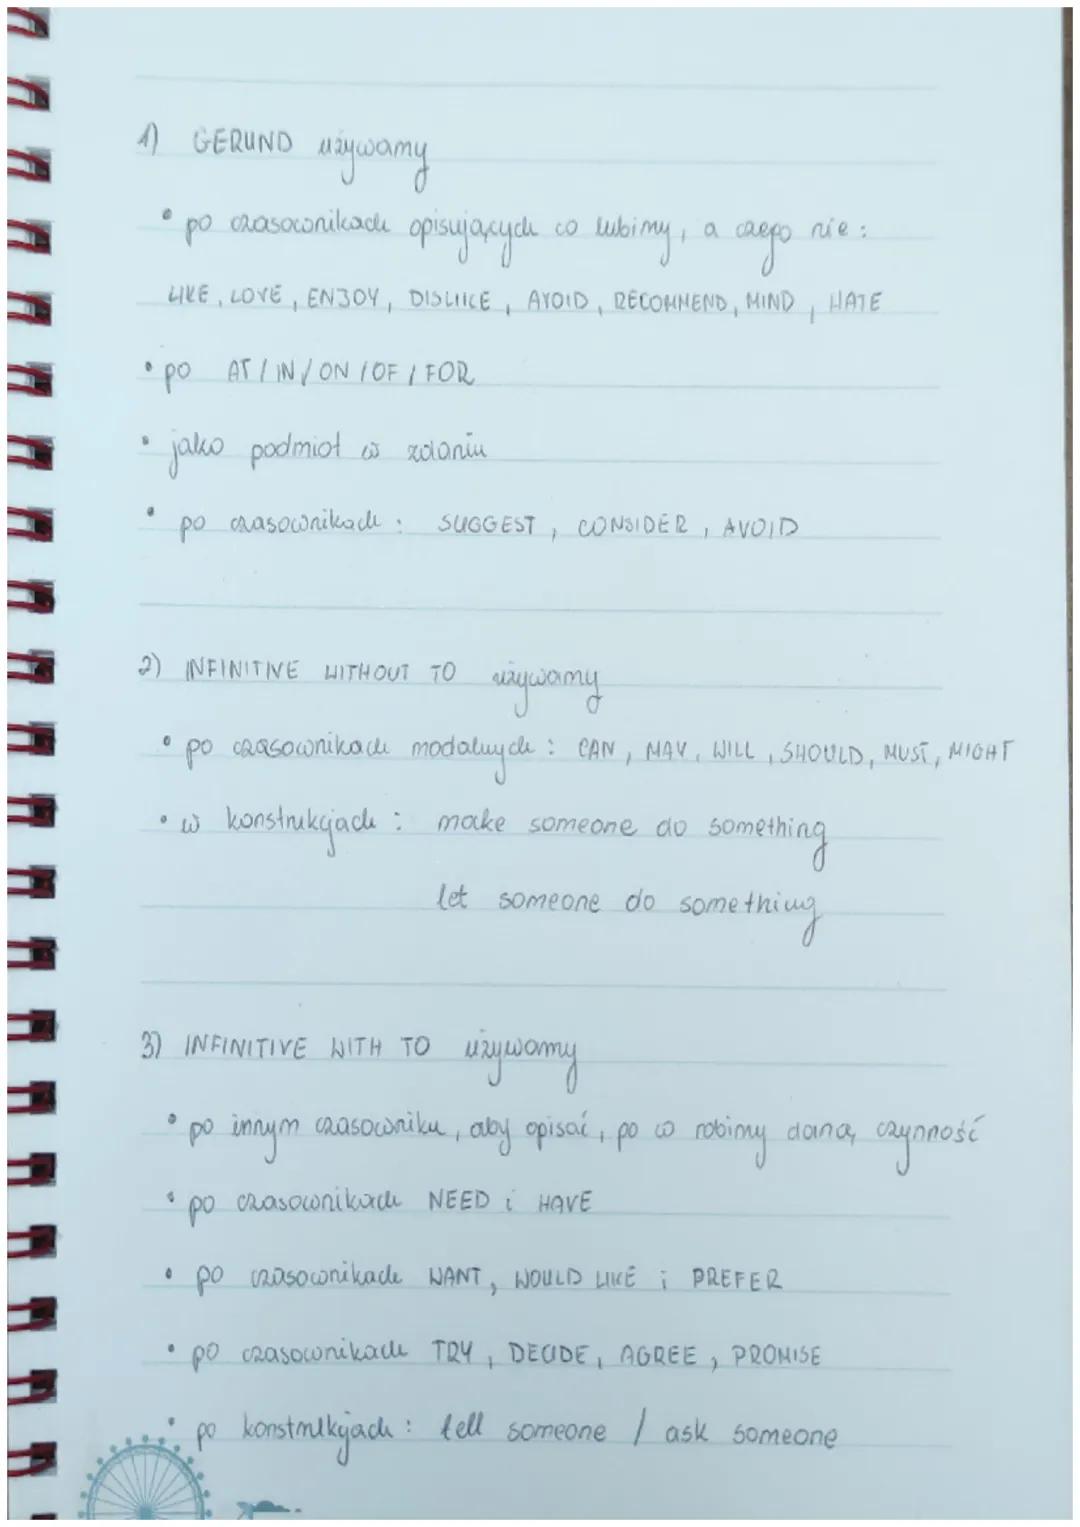 1) GERUND używamy
• po czasownikach opisujących co lubimy, a czego nie:
LIKE, LOVE, ENJOY, DISLIKE, AVOID, RECOMMEND, MIND, HATE
• po AT / IN / ON / OF / FOR
• jako podmiot w zdaniu
• po czasownikach: SUGGEST, CONSIDER, AVOID
2) INFINITIVE WITHOUT TO używamy
• po czasownikach modalnych: CAN, MAY, WILL, SHOULD, MUST, MIGHT
• w konstrukcjach: make someone do something
let someone do something
3) INFINITIVE WITH TO używamy
• po innym czasowniku, aby opisać, po co robimy daną czynność
• po czasownikach NEED i HAVE
• po czasownikach WANT, WOULD LIKE i PREFER
• po czasownikach TRY, DECIDE, AGREE, PROMISE
• po konstrukcjach: tell someone / ask someone